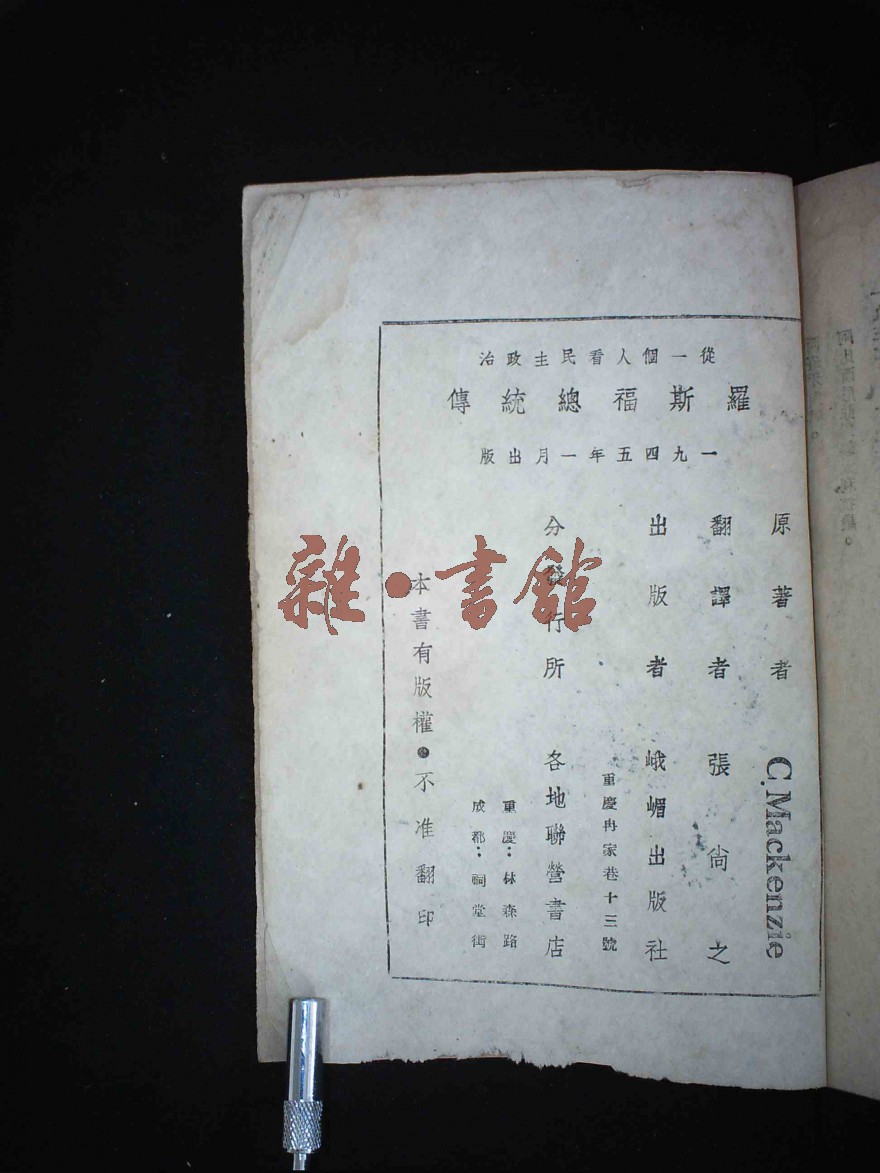 從一個人看民主政治
羅斯福總統傳
一九四五年一月出版
原著者 C. Mackenzie
翻譯者 張尙之
出版者 峨嵋出版社
重慶冉家巷十三號
分發行所 各地聯營書店
重慶：林森路
成都：祠堂街
本書有版權●不准翻印
雜·書館